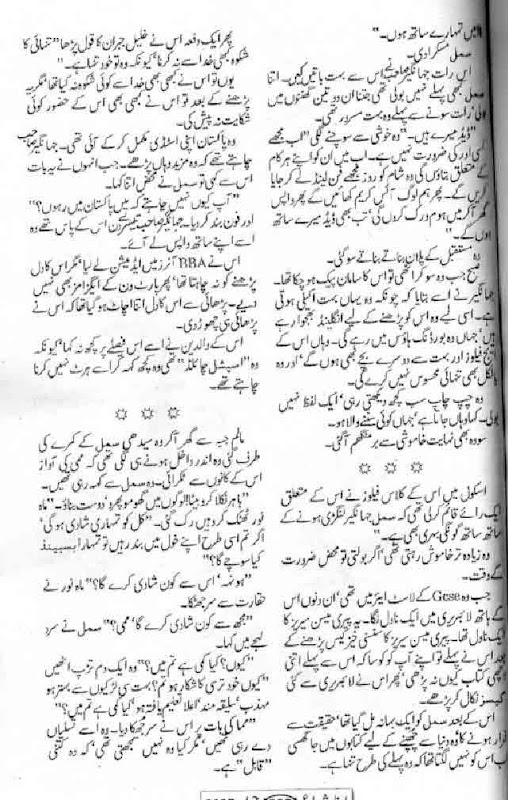 میں تمہارے ساتھ ہوں۔"
سمل مسکرا دی۔
اس رات جہانگیر صاحب نے اس سے بہت باتیں کیں۔ اتنا
سمل کبھی پہلے نہیں بولی تھی جتنا ان دو تین گھنٹوں میں
بولی' رات سونے سے پہلے وہ بہت مسرور تھی۔
"ڈیڈ میرے ہیں۔" وہ خوشی سے سوچنے لگی "اب مجھے
کسی اور کی ضرورت نہیں ہے۔ اب میں ان کو اپنے ہر کام
کے متعلق بتاؤں گی وہ شام کو روز مجھے فن لینڈ لے کر جایا
کریں گے۔ پھر ہم لوگ آئس کریم کھائیں گے پھر واپس
گھر آکر میں ہوم ورک کروں گی' تب بھی ڈیڈ میرے ساتھ
ہوں گے۔"
وہ مستقبل کے پلان بناتے بناتے سو گئی۔
صبح جب وہ سو کر اٹھی تو اس کا سامان پیک ہو چکا تھا۔
جہانگیر نے اسے بتایا کہ چونکہ وہ یہاں بہت اکیلی ہوتی
ہے۔ اسی لیے وہ اس کو پڑھنے کے لیے انگلینڈ بھجوا رہے
ہیں' جہاں وہ بورڈنگ ہاؤس میں رہے گی۔ وہاں اس کے
فیلوز اور بہت سے دوسرے بچے بھی ہوں گے' اور وہ
بالکل بھی تنہائی محسوس نہیں کرے گی۔
وہ چپ چاپ سب کچھ دیکھتی رہی' ایک لفظ نہیں
بولی۔ کہا وہاں جاتا ہے' جہاں کوئی سننے والا ہو۔
سو وہ بھی نہایت خاموشی سے برمنگھم آگئی۔
☼ ☼ ☼
اسکول میں اس کے کلاس فیلوز نے اس کے متعلق
ایک رائے قائم کر لی تھی کہ سمل جہانگیر لنگڑی ہونے کے
ساتھ ساتھ گونگی بہری بھی ہے۔
وہ زیادہ تر خاموش رہتی تھی' اگر بولتی تو محض ضرورت
کے وقت۔
جب وہ Gcse کے لاسٹ ایئر میں تھی' ان دنوں اس
کے ہاتھ لائبریری میں ایک ناول لگا۔ یہ پیری میسن سیریز کا
ایک ناول تھا۔ پیری میسن سیریز کا سسپنس خیز کیس پڑھنے کے
بعد اس نے پہلے تو اپنے آپ کو کوسا کہ اس سے پہلے اتنی
اچھی کتاب کیوں نہ پڑھی' پھر اس نے لائبریری سے کئی
کیسز نکال کر پڑھے۔
اس کے بعد سمل کو ایک بہانہ مل گیا تھا' حقیقت سے
فرار ہونے کا' وہ دنیا سے چھپنے کے لیے کتابوں میں جا گھسی
اب اس کو نہیں لگتا تھا کہ وہ پہلے کی طرح تنہا ہے۔
پھر ایک دفعہ اس نے خلیل جبران کا قول پڑھا "تنہائی کا
شکوہ کبھی خدا سے نہ کرنا' کیونکہ وہ تو خود تنہا ہے۔"
یوں تو اس نے کبھی بھی خدا سے کوئی شکوہ نہ کیا تھا' مگر یہ
پڑھنے کے بعد تو اس نے کبھی بھی اس کے حضور کوئی
شکایت نہ پیش کی۔
وہ پاکستان اپنی اسٹڈی مکمل کر کے آئی تھی۔ جہانگیر صاحب
چاہتے تھے کہ وہ مزید وہاں پڑھے۔ جب انہوں نے یہ بات
اس سے کہی تو سمل نے محض اتنا کہا۔
"آپ کیوں نہیں چاہتے کہ میں پاکستان میں رہوں؟"
اور فون بند کر دیا۔ جہانگیر صاحب تیسرے دن اس کے پاس تھے وہ
اسے اپنے ساتھ واپس لے آئے۔
اس نے BBA آنرز میں ایڈمیشن لے لیا' مگر اس کا دل
پڑھنے کو نہ چاہتا تھا' پھر پارٹ ون کے ایگزامز بھی نہیں
دیے۔ پڑھائی سے اس کا دل اتنا اچاٹ ہو گیا تھا کہ اس نے
پڑھائی ہی چھوڑ دی۔
اس کے والدین نے اسے اس فیصلے پر کچھ نہ کہا' کیونکہ
وہ "اسپیشل چائلڈ" تھی وہ کچھ کہہ کر اسے ہرٹ نہیں کرنا
چاہتے تھے۔
☼ ☼ ☼
عالم جبہ سے گھر آکر وہ سیدھی سمل کے کمرے کی
طرف گئی وہ اندر داخل ہونے ہی لگی تھی کہ ممی کی آواز
اس کے کانوں سے ٹکرائی۔ وہ سمل سے کہہ رہی تھیں۔
"باہر نکلا کرو بیٹا' لوگوں میں گھومو پھرو' دوست بناؤ۔" ماہ
نور ٹھٹک کر وہیں رک گئی۔ "کل کو تمہاری شادی ہوگی'
اگر تم اسی طرح اپنے خول میں بند رہیں تو تمہارا ہسبینڈ
کیا سوچے گا؟"
"ہونہہ' اس سے کون شادی کرے گا؟" ماہ نور نے
حقارت سے سر جھٹکا۔
"مجھ سے کون شادی کرے گا' ممی؟" سمل نے سرد
لہجے میں کہا۔
"کیوں؟ کیا کمی ہے تم میں؟" وہ ایک دم تڑپ اٹھیں
"کیوں خود ترسی کا شکار ہو تم؟ بہت سی لڑکیوں سے بہتر ہو
مہذب' سلیقہ مند' اعلا تعلیم یافتہ ہو' کیا کمی ہے تم میں؟"
"مما کی بات پر اس نے سر جھکا دیا۔ وہ اسے تسلیاں
دے رہی تھیں' مگر کیا وہ نہیں سمجھتی تھی' کہ وہ کتنی
"قابل" ہے۔